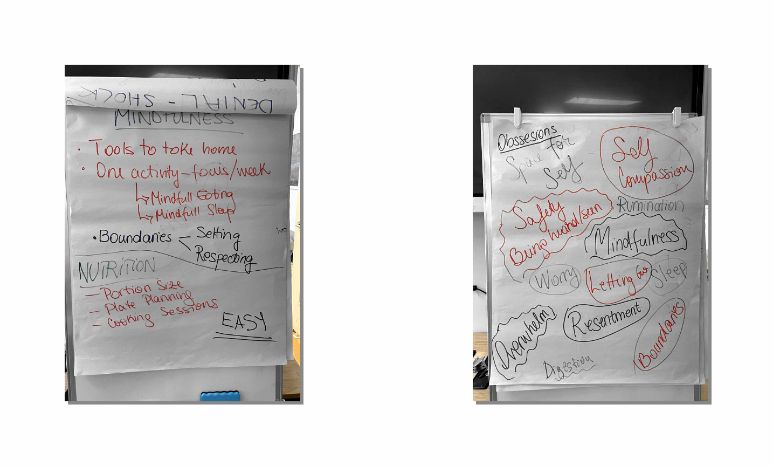 DENIAL - SHOCK
MINDFULNESS
• Tools to take home
• One activity-focus/week
↳ Mindfull Eating
↳ Mindfull Sleep
• Boundaries < Setting
Respecting
NUTRITION
— Portion Size
— Plate Planning
— Cooking Sessions
EASY
Obssesions
Space for
Self
Self
Compassion
Safety
Being heard/seen
Rumination
Mindfulness
Worry
Letting Go
Sleep
Overwhelm
Resentment
Boundaries
Digestion